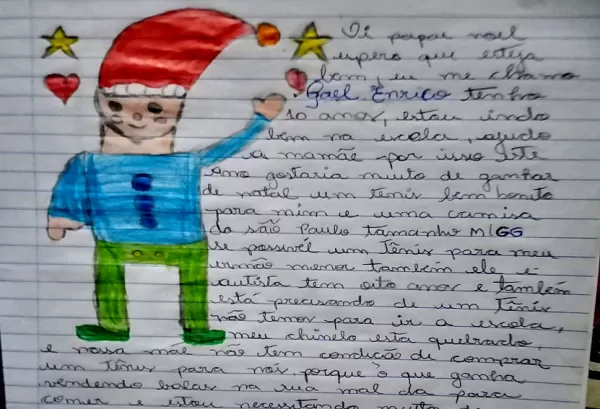 Oi papai noel
espero que esteja
bem, eu me chamo
Gael Enrico tenho
10 anos, estou indo
bem na escola, ajudo
a mamãe por isso este
ano gostaria muito de ganhar
de natal um tenis bem bonito
para mim e uma camisa
do são Paulo tamanho M/GG
se possivél um Tênis para meu
irmão menor também ele é
autista tem oito anos e também
está precisando de um Tênis
não temos para ir a escola,
meu chinelo esta quebrado,
e nossa mãe não tem condicão de comprar
um Tênis para nós, porque o que ganha
vendendo balas na rua mal da para
comer e estou necessitando muito de